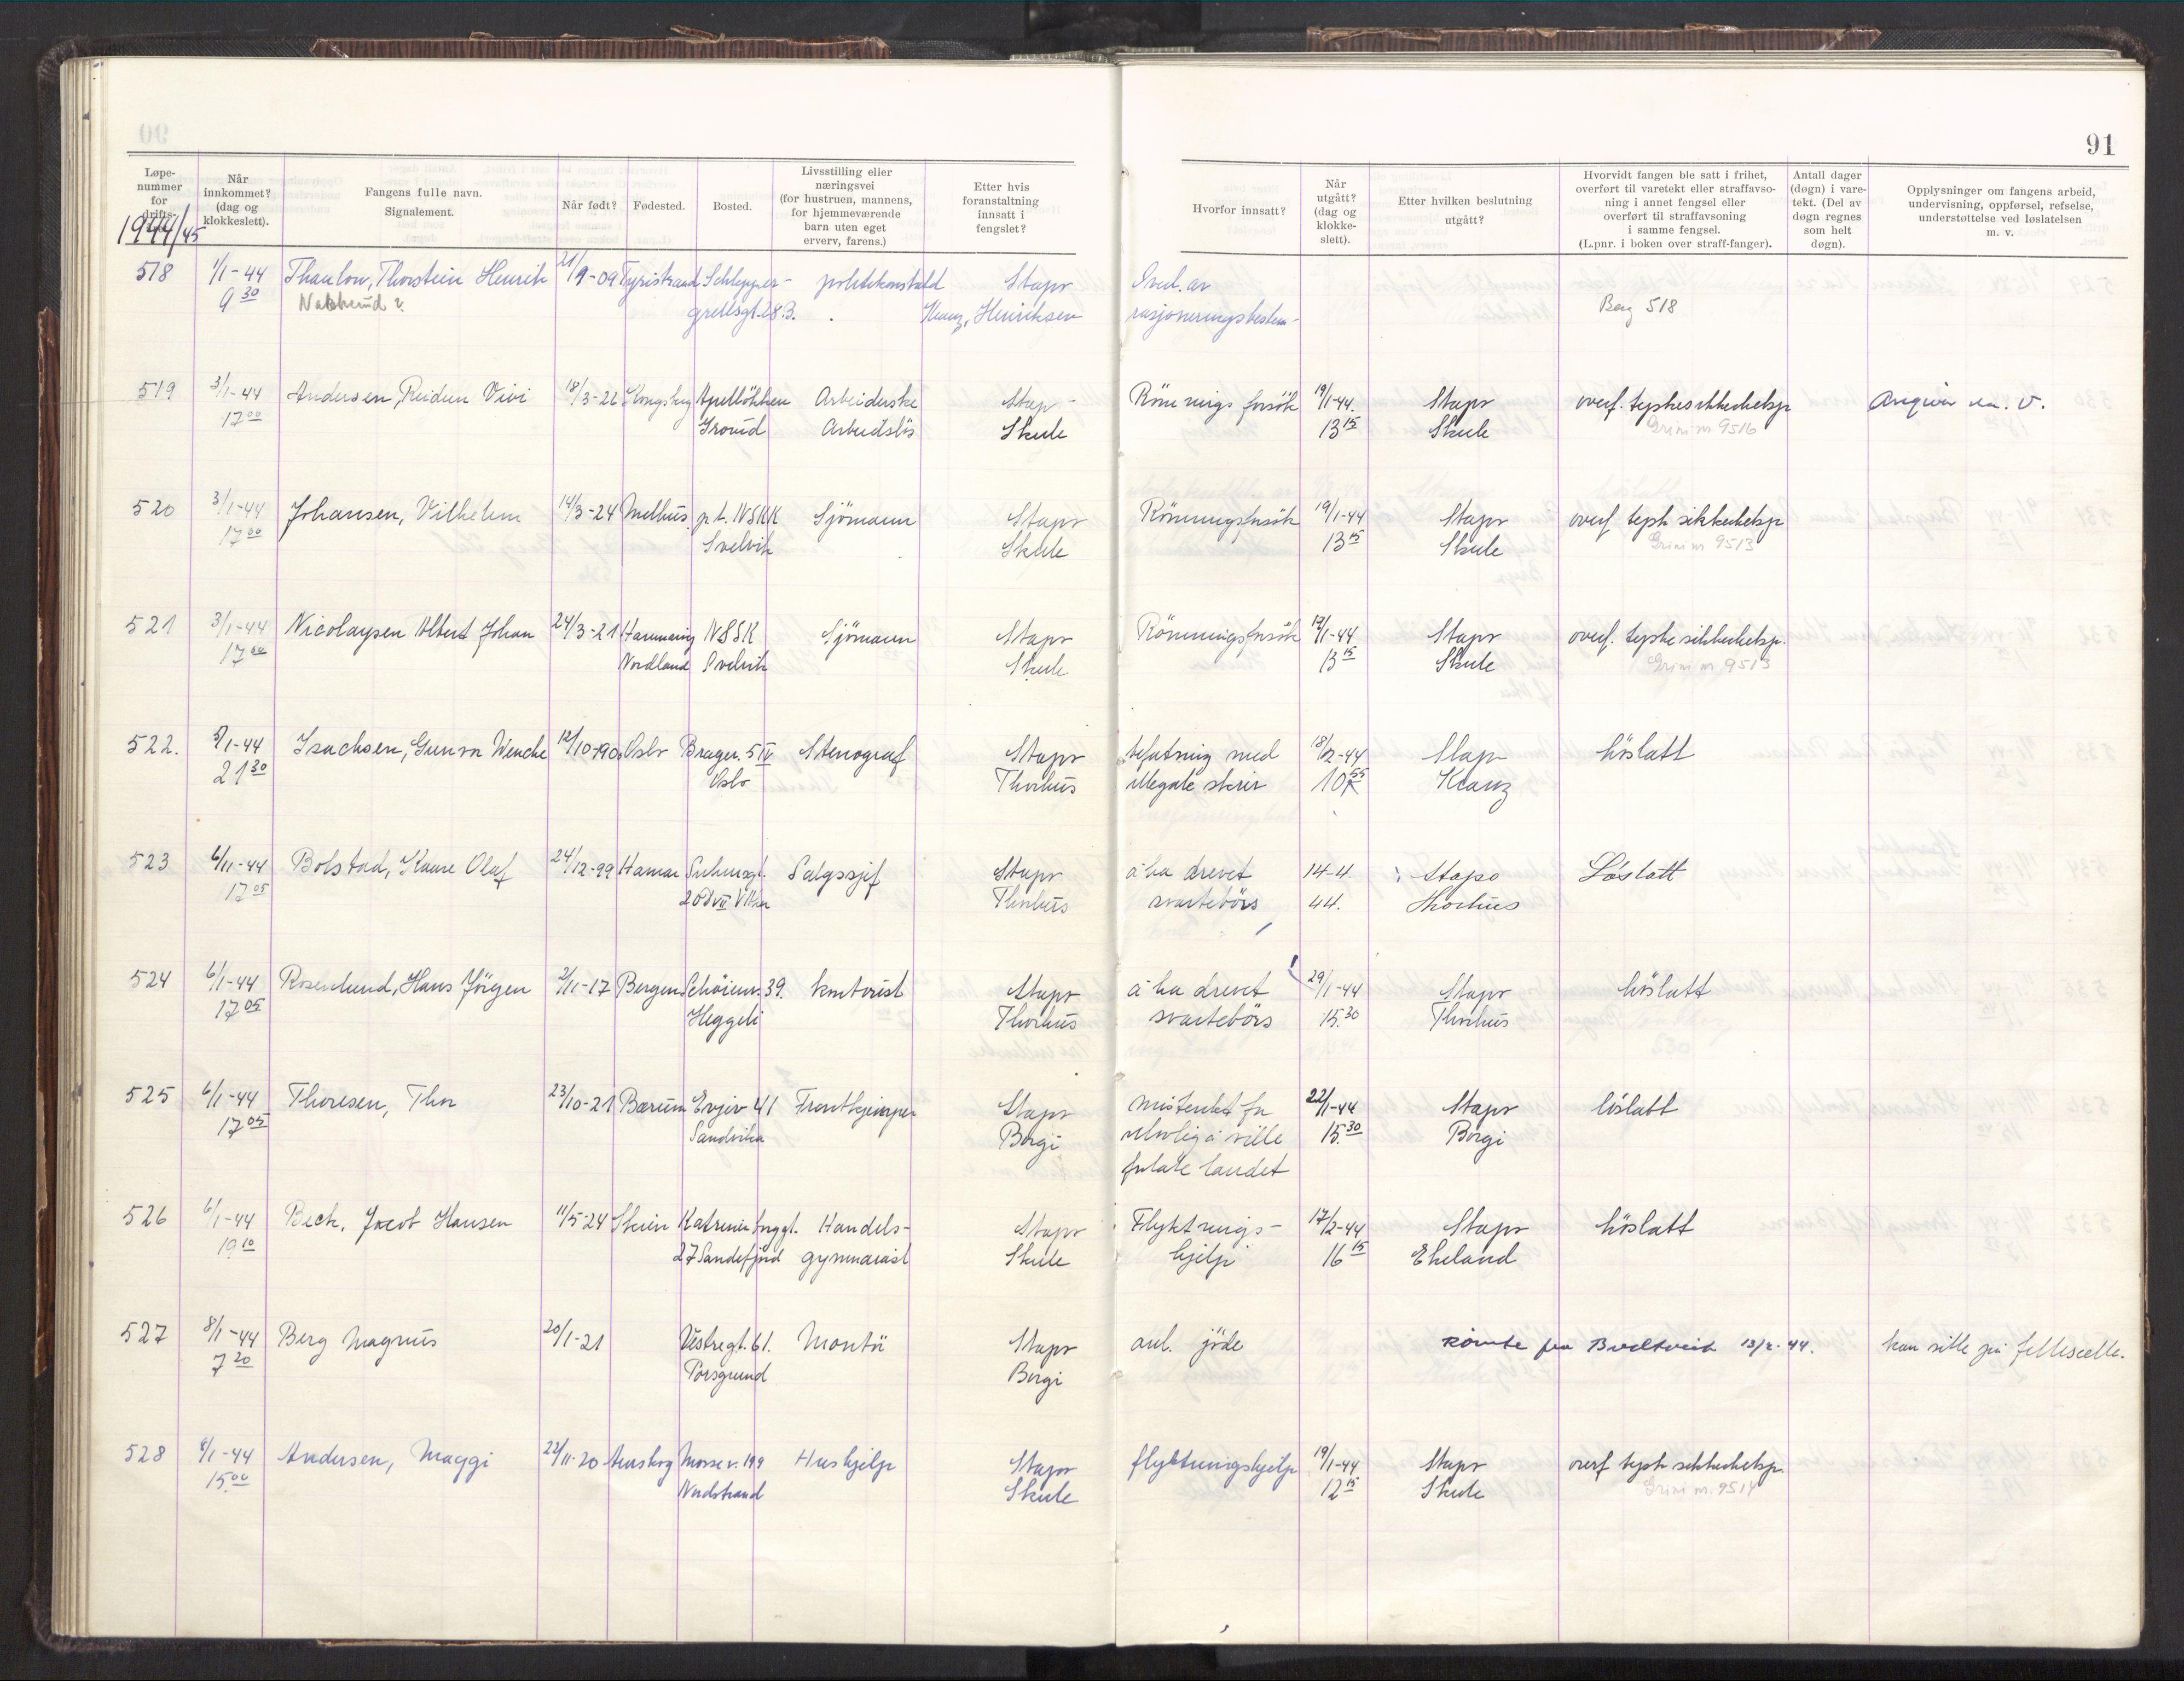 91
Løpe-
nummer
for
drifts-
1944/45
Når
innkommet?
(dag og
klokkeslett).
Fangens fulle navn.
Signalement.
Når født?
Fødested.
Bosted.
Livsstilling eller
næringsvei
(for hustruen, mannens,
for hjemmeværende
barn uten eget
erverv, farens.)
Etter hvis
foranstaltning
innsatt i
fengslet?
Hvorfor innsatt?
Når
utgått?
(dag og
klokke-
slett).
Etter hvilken beslutning
utgått?
Hvorvidt fangen ble satt i frihet,
overført til varetekt eller straffavso-
ning i annet fengsel eller
overført til straffavsoning
i samme fengsel.
(L.pnr. i boken over straff-fanger).
Antall dager
(døgn) i vare-
tekt. (Del av
døgn regnes
som helt
døgn).
Opplysninger om fangens arbeid,
undervisning, oppførsel, refselse,
understøttelse ved løslatelsen
m. v.
518 1/1-44 Thaulow, Thorstein Henrik 21/9-09 Tyristrand Schlepper- politikonstabl Stapo av
9 30 grellsgt. 28 B. Henriksen rasjoneringsbestem- Berg 518
519 3/1-44 Andersen, Reidun Vivi 18/3-22 Kongsberg Arbeiderske Stap Römnings forsök 19/1-44. Stapo overf. tyske sikkerhetsp
17 00 Grorud Arbeidslös Skule 13 15 Skule Grini nr 9516
520 3/1-44 Johansen, Vilhelm 14/3-24 Melhus p.t. NSKK Sjömann Stapo Römningsforsök 19/1-44 Stapo overf tysk sikkerhetsp
17 00 Svelvik Skule 13 15 Skule Grini nr 9513
521 3/1-44 Nicolaysen Albert Johan 24/3-21 Hammaröy NSSK Sjömann Stapo Römningsforsök 19/1-44 Stapo overf. tyske sikkerhetsp.
17 00 Nordland Svelvik Skule 13 15 Skule Grini nr 9513
522. 5/1-44 Isachsen, Gunvor Wenche 12/10-190 Oslo Brager. 5 IV Stenograf Stapo befatning med 18/2-44 Stapo löslatt
21 30 Oslo Thorhus illegale skrir 10 55 Kranz
523 6/11-44 Bolstad, Kaare Olaf 24/12-99 Hamar Salgssjef Stapo å ha drevet 14-4 Stapo Löslatt
17 05 Thorhus svartebörs 44. Thorhus
524 6/1-44 Rosenlund, Hans Jörgen 2/11-17 Bergen Schöiens. 39. kontorist Stapo å ha drevet 29/1-44 Stapo löslatt
17 05 Heggeli Thorhus svartebörs 15.30 Thorhus
525 6/1-44 Thoresen, Thor 23/10-21 Bærum Evjev 41 Frontkjemper Stapo mistenkt for 22/1-44 Stapo löslatt
17 05 Sandvika Borgi ulovlig å ville 15.30 Borgi
forlate landet
526 6/1-44 Beck, Jacob Hansen 11/5-24 Skien Katrineborggt. Handels- Stapo Flyktnings- 17/2-44 Stapo löslatt
19 10 27 Sandefjord gymnasiast Skule hjelp 16 15 Ekeland
527 8/1-44 Berg Magnus 20/1-21 Vestregt. 61. Montör Stapo anl. jöde Römte fra Bredtveit 13/2-44. kan sitte på fellescelle.
7 20 Porsgrund Borgi
528 8/1-44 Andersen, Maggi 22/11-20 Mossev. 199 Hushjelp Stapo flyktningshjelp 19/1-44 Stapo overf tysk sikkerhetsp.
15.00 Nordstrand Skule 12 15 Skule Grini nr. 9514